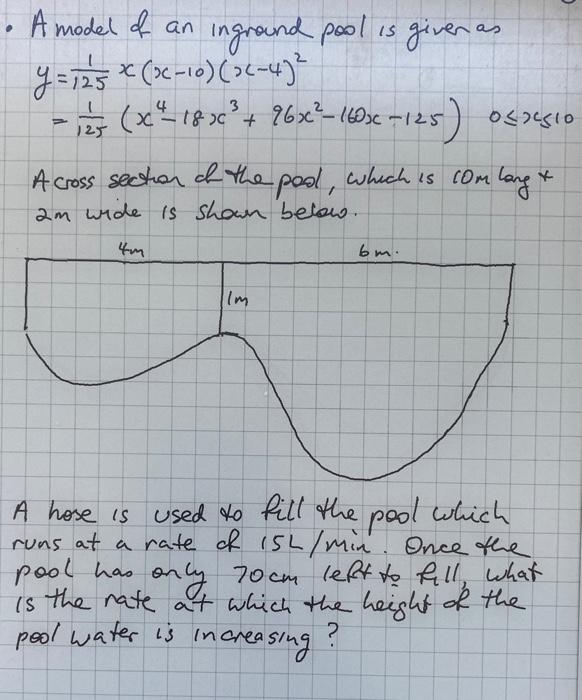 • A model of an inground pool is given as
y = 1/125 x (x-10)(x-4)²
= 1/125 (x⁴ - 18x³ + 96x² - 160x - 125) 0≤x≤10
A cross section of the pool, which is 10m long +
2m wide is shown below.
4m 6m.
1m
A hose is used to fill the pool which
runs at a rate of 15L/min. Once the
pool has only 70cm left to fill, what
is the rate at which the height of the
pool water is increasing?